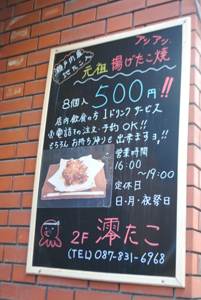 瀬戸内産
地ダコ
アツアツ
元祖 揚げたこ焼
8個入 500円!!
店内飲食の方1ドリンクサービス
お電話での注文・予約OK!!
もちろんお持ち帰りも出来ますョ!!
営業時間
16:00
～19:00
定休日
日・月・祝祭日
2F 澪たこ
(TEL) 087-831-6968